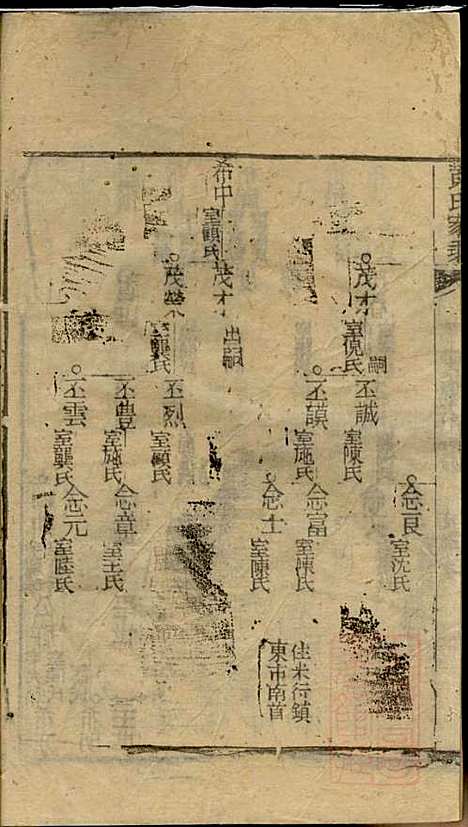 黃氏家乘
念良
室沈氏
茂才
嗣
室倪氏
丕誠
室陳氏
丕謨
室施氏
念富
室陳氏
住米行鎮
東市南首
念士
室陳氏
希中
室顧氏
茂才
出嗣
茂榮
室龔氏
丕烈
室顧氏
丕豊
室施氏
念章
室王氏
丕雲
室龔氏
念元
室陸氏